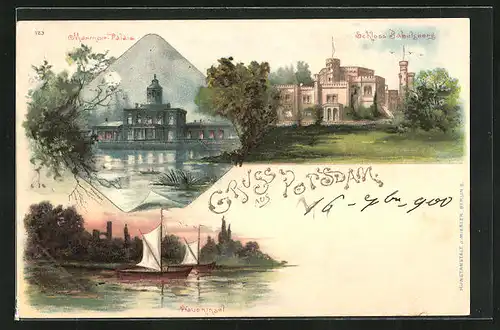 123
Marmor-Palais
Schloss Babelsberg
GRUSS
AUS
POTSDAM.
Pfaueninsel
KUNSTANSTALT J. MIESLER BERLIN S.